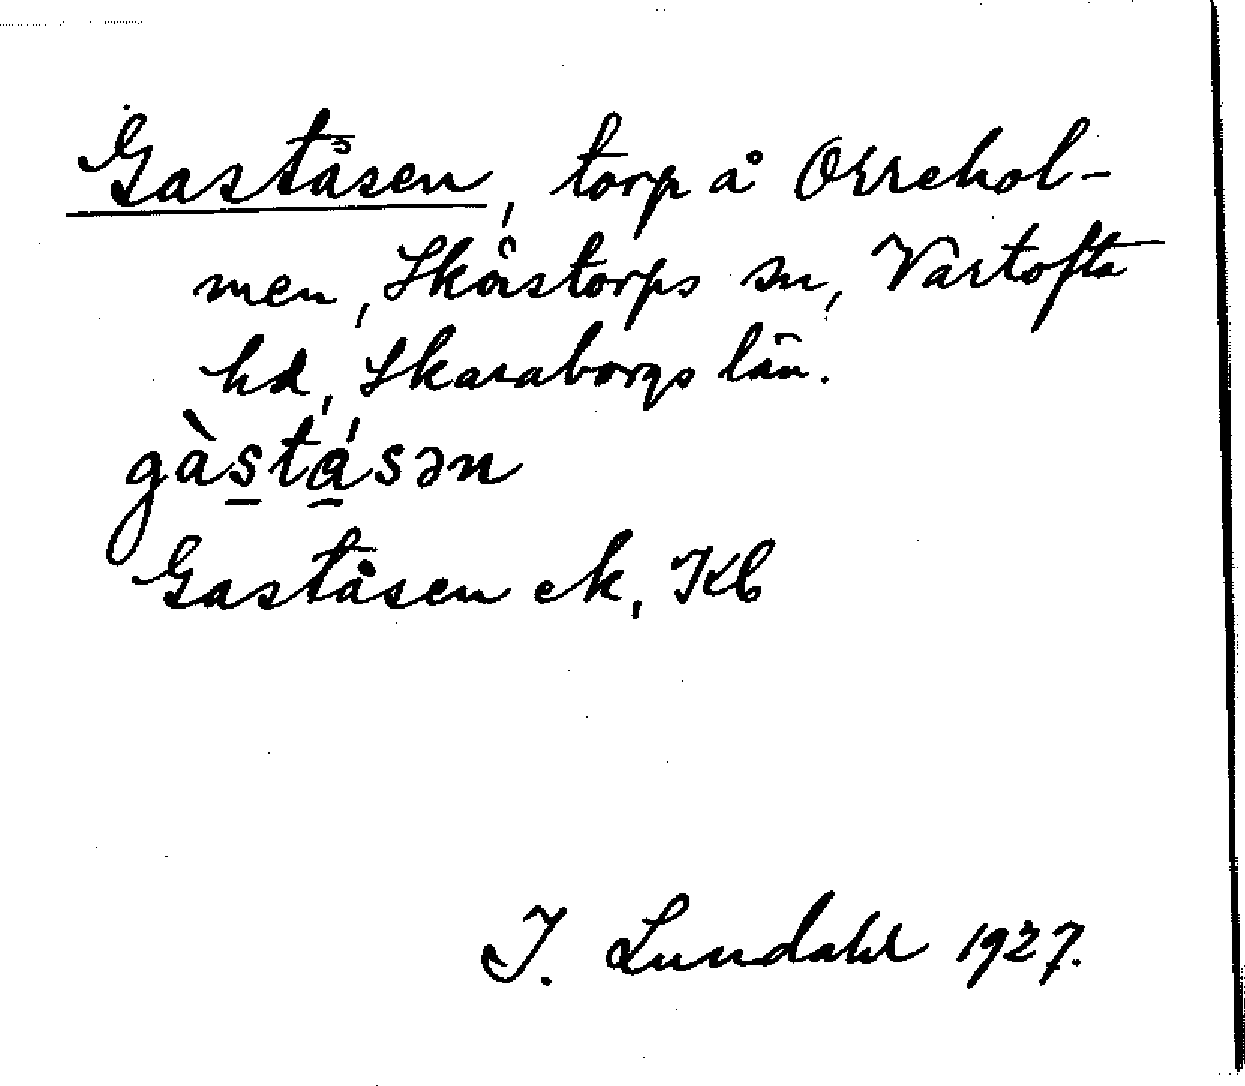 Gaståsen, torp å Orrehol-
men, Skörstorps sn, Vartofta
hd, Skaraborgs län.
gàs̠tá̠sən
Gaståsen ek, Kb
I. Lundahl 1927.